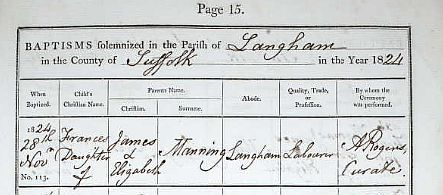 Page 15.
BAPTISMS solemnized in the Parish of Langham
in the County of Suffolk in the Year 1824
When Baptized. Child's Christian Name. Parents Name. Abode. Quality, Trade, or Profession. By whom the Ceremony was performed.
Christian. Surname.
1824 28th Nov No. 113. Frances Daughter of James & Elizabeth Manning Langham Labourer A Rogers, Curate.